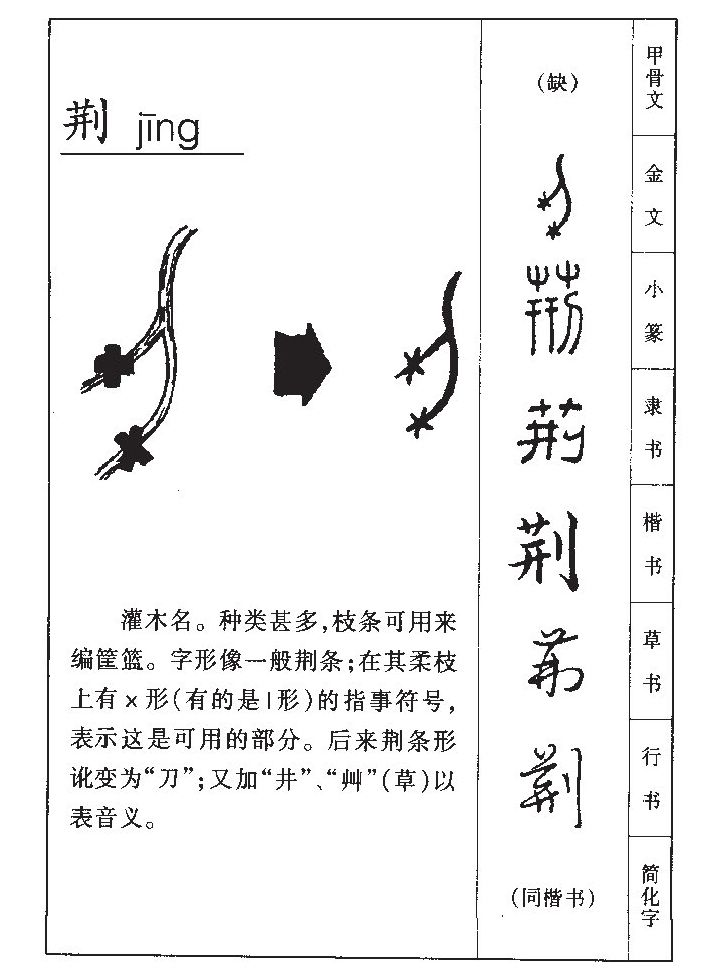 荆 jīng
灌木名。种类甚多,枝条可用来
编筐篮。字形像一般荆条;在其柔枝
上有×形(有的是|形)的指事符号,
表示这是可用的部分。后来荆条形
讹变为“刀”;又加“井”、“艸”(草)以
表音义。
(缺)
荆
荆
荆
荆
荆
荆
(同楷书)
甲骨文
金文
小篆
隶书
楷书
草书
行书
简化字